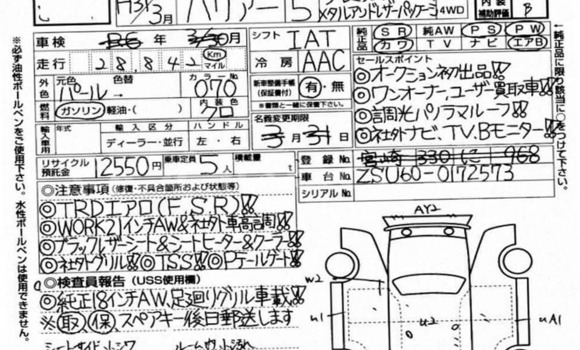 H31年 3月 ハリアー 5 メタルアンドレザーパッケージ 4WD
内装 補助評価 B
※必ず油性ボールペンをご使用下さい。水性ボールペンは使用できません。
車検 R6年 3月
シフト IAT
SR 純正AW PS PW
カワ TV ナビ エアB
走行 28,842 Km マイル
冷房 AAC
セールスポイント
◎オークション初出品!!
◎ワンオーナー、ユーザー買取車!!
◎調光パノラマルーフ!!
◎社外ナビ、TV、Bモニター!!
外装 元色 パール→ 色替 カラーNo. 070
新車整備手帳 (保証書付) 有・無
※書類と一緒に保管下さい。
燃料 ガソリン 軽油・( ) 内装色 クロ
名義変更期限
3月31日
輸入車用 年式 輸入区分 ハンドル
ディーラー・並行 左・右
リサイクル預託金 12550円 乗車定員 5人 積載量 t
登録No. 宮崎 330 に 968
車台No. ZSU60-0172573
シリアルNo.
◎注意事項(修復・不具合箇所および状態等)
◎TRDエアロ(F、S、R)!!
◎WORK21インチAW&社外車高調!!
◎ブラックレザーシート&シートヒーター&クーラー!!
◎社外グリル!!◎TSS!!◎Pゲート!!
◎検査員報告(USS使用欄)
◎純正18インチAW、足3回りグリル車載!!
※取 保 スペアキー後日郵送します
シートサイド小シワ
AY2
W2
U1
U2
UA1